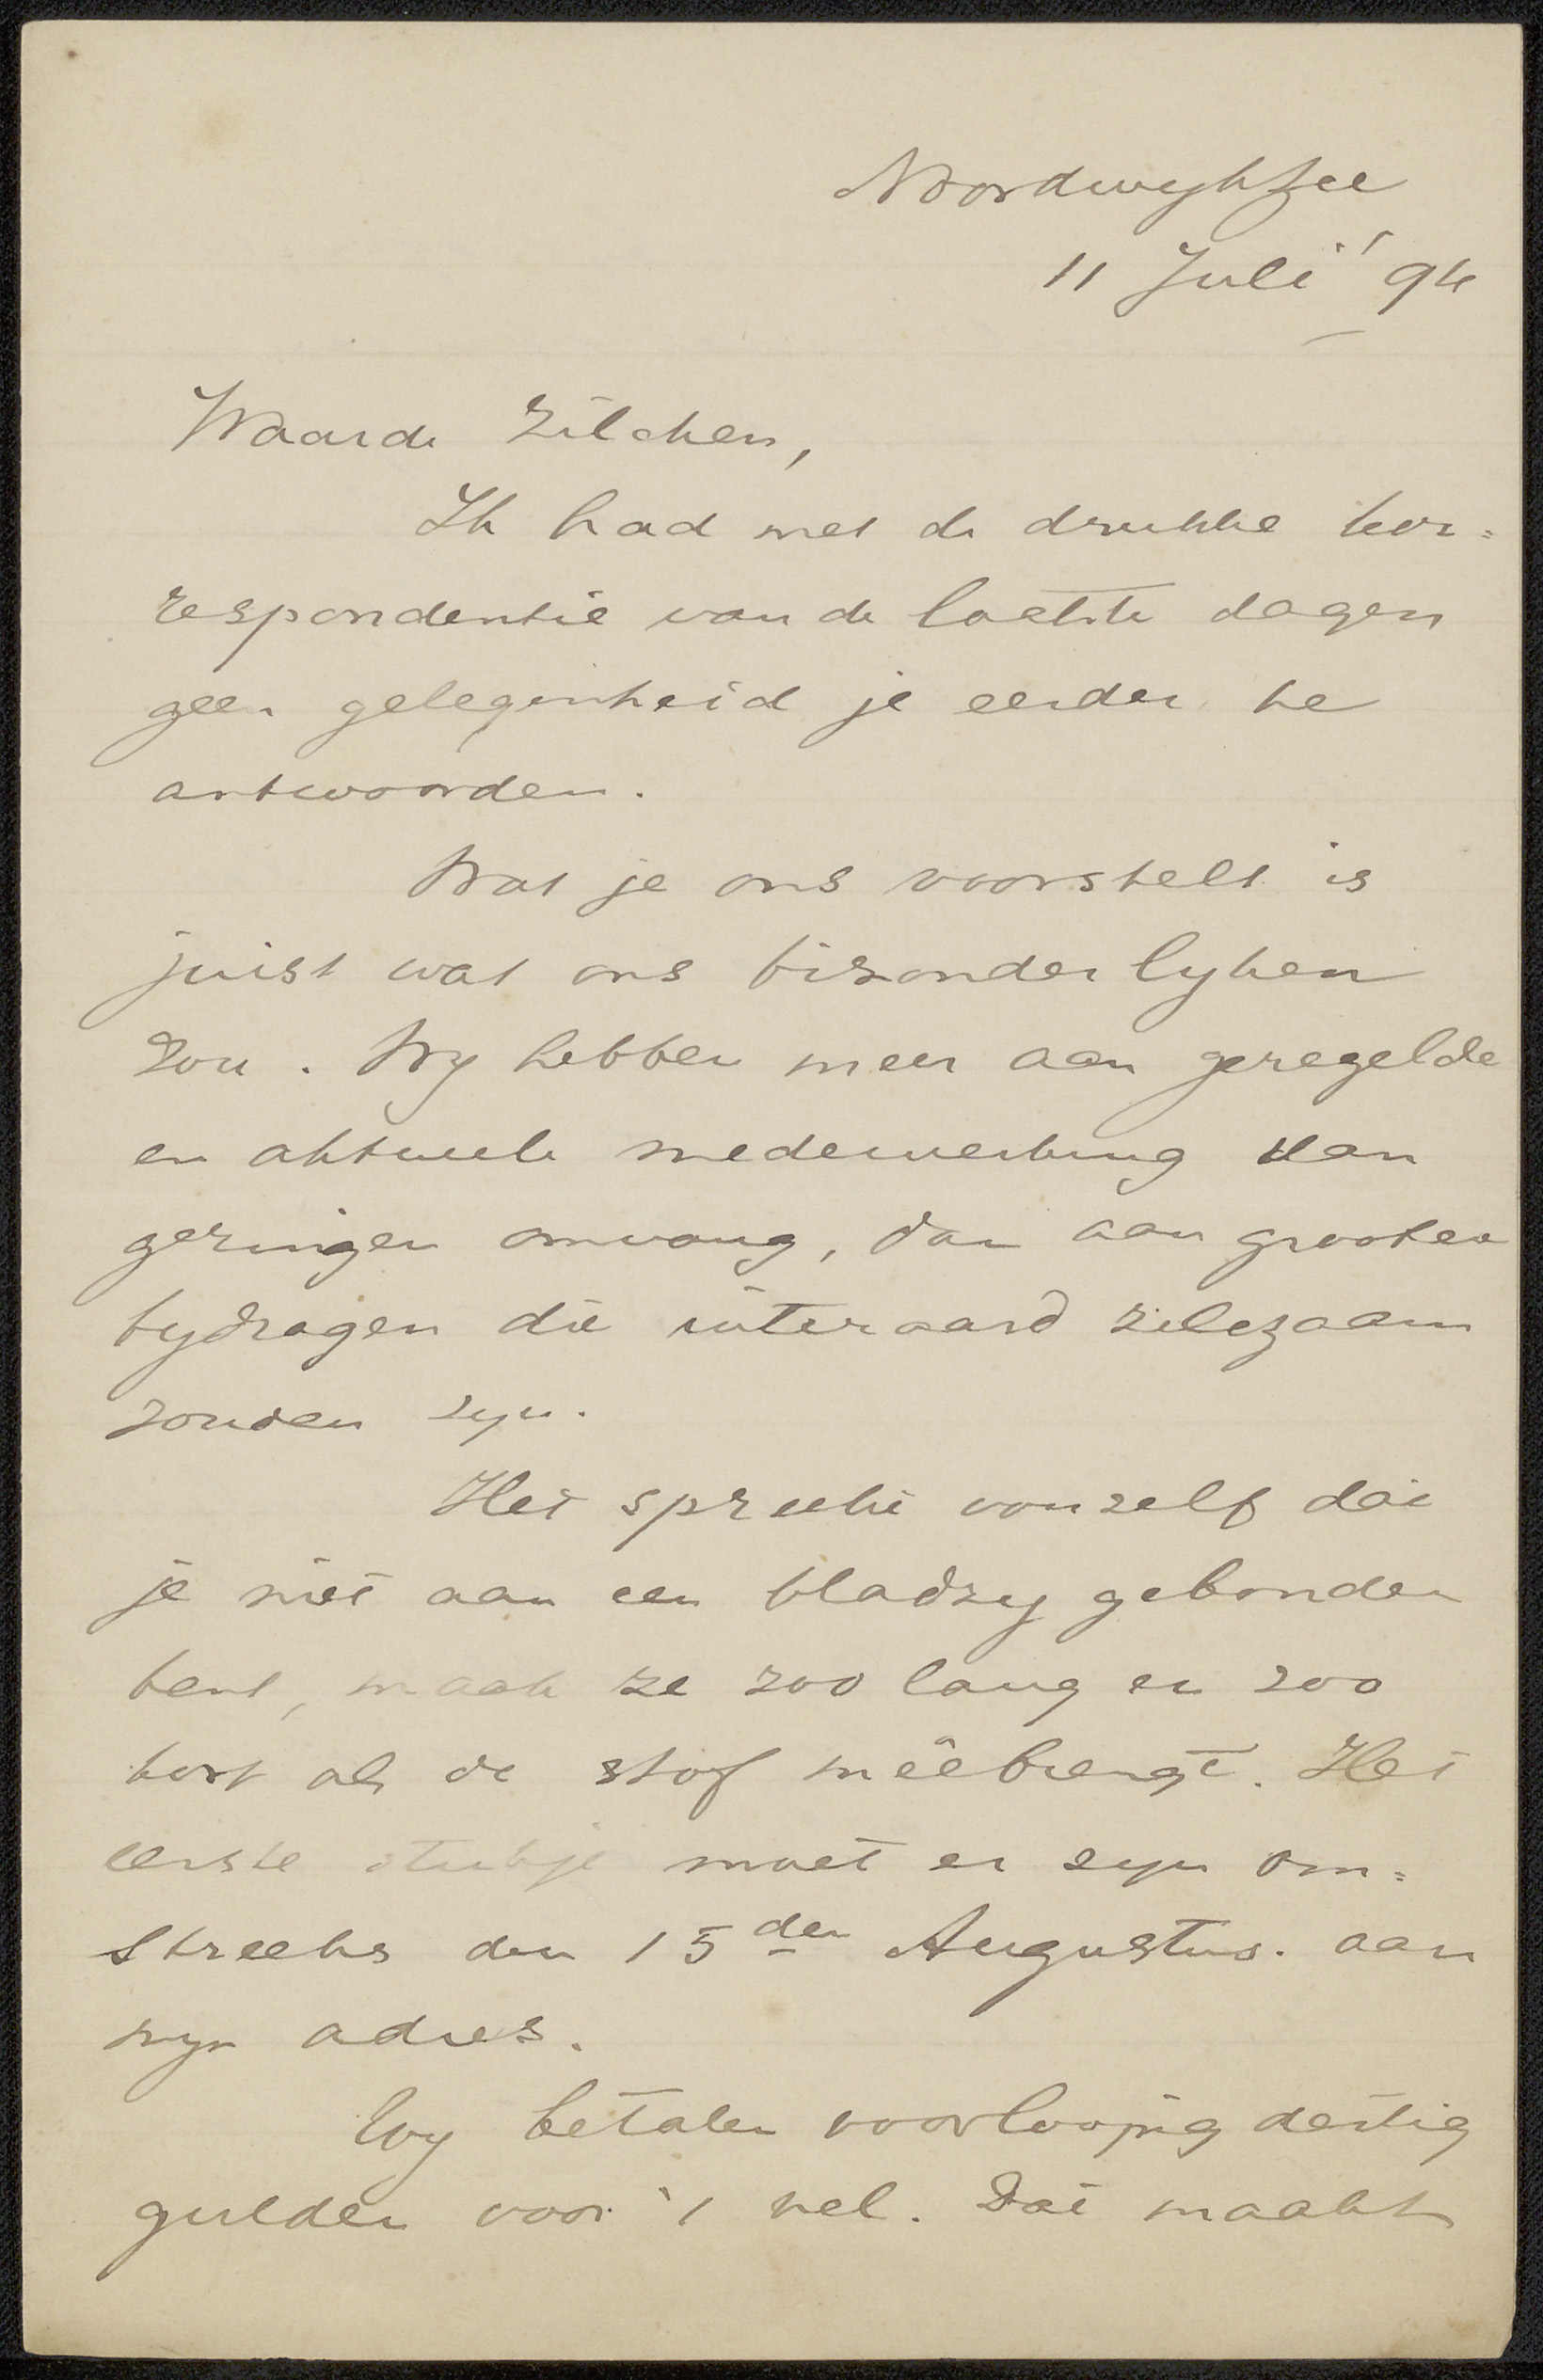 Noordwykzee
11 Juli '94
Waarde Zilcken,
Ik had met de drukke kor=
respondentie van de laatste dagen
geen gelegenheid je eerder te
antwoorden.
Wat je ons voorstelt is
juist wat ons bizonder lyken
zou. Wy hebben meer aan geregelde
en aktueele medewerking van
geringen omvang, dan aan grootere
bydragen die uiteraard zeldzaam
zouden zyn.
Het spreekt vanzelf dat
je niet aan een bladzy gebonden
bent, maak ze zoo lang en zoo
kort als de stof meêbrengt. Het
eerste stukje moet er zyn om=
streeks den 15den Augustus. aan
myn adres.
Wy betalen voorloopig dertig
gulden voor 't vel. Dat maakt